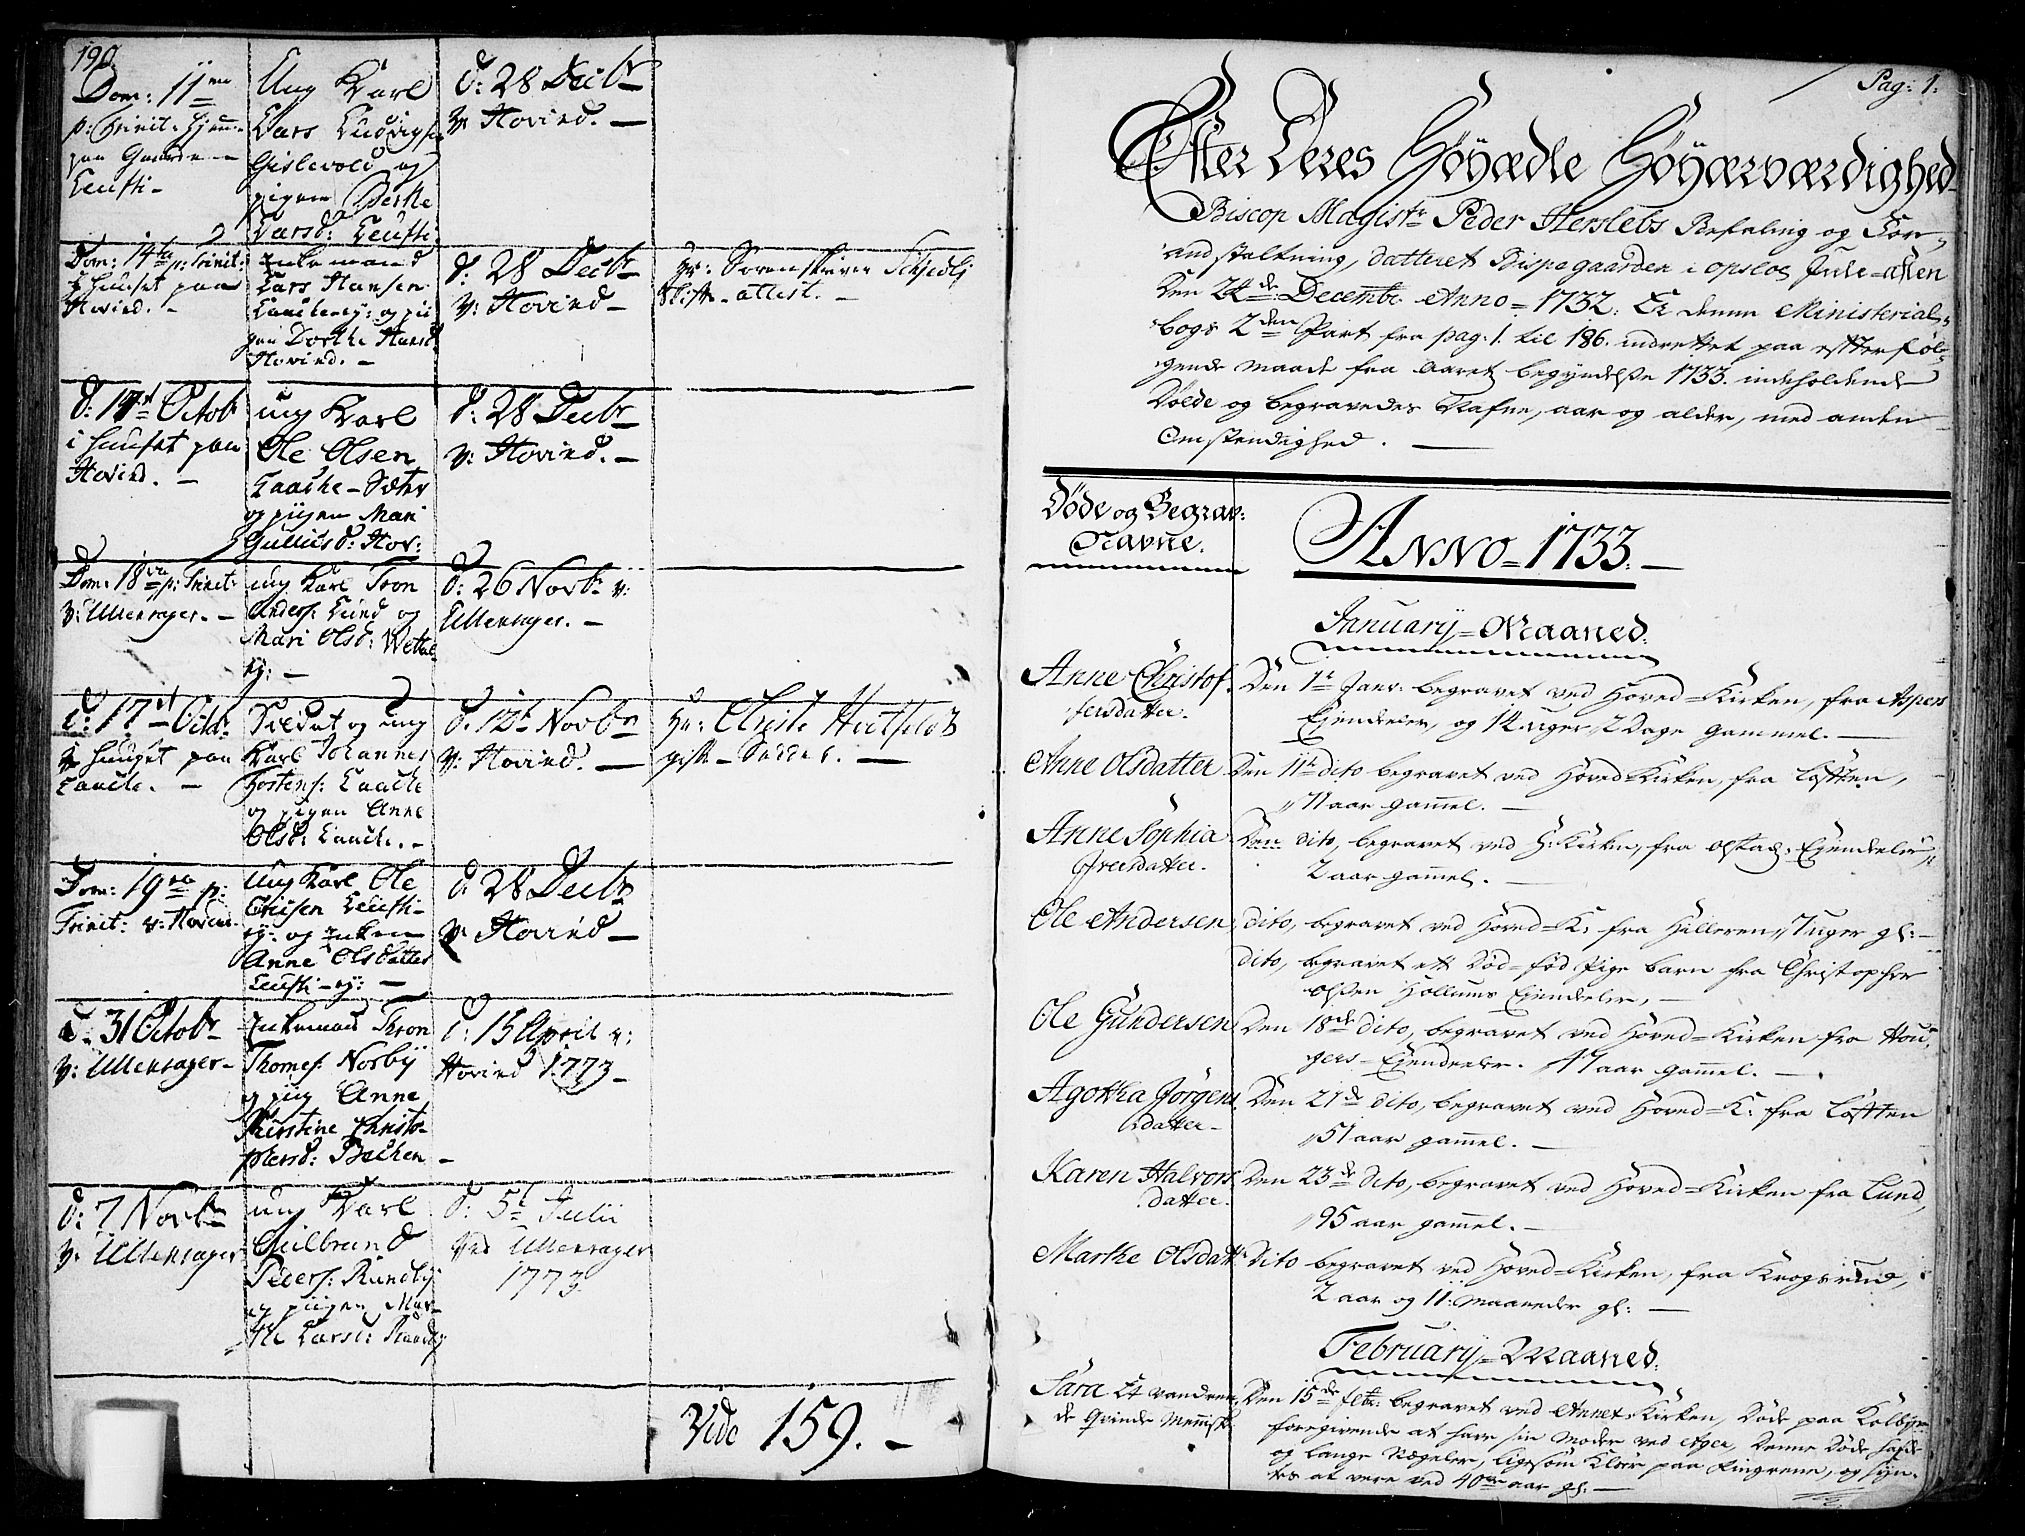 190.
Dom: 11me
p: Trinit: hiem
paa Gaarden
Leufti –
Ung Karl
Lars Ludvigs:
Gislevold og
pigen Berthe
Larsd: Leufti
d: 28 Decbr
v: Hovind. –
Dom: 14ta p: Trinit:
i Huuset paa
Hovind. –
Enkemand
Lars Hansen
Laache ej: og pi
gen Dorthe Hansd:
Hovind. –
d: 28 Decbr
v: Hovind –
Hr: Sorenskriver
skift-attest. –
d: 17st Octob
i Huuset paa
Hovind. –
ung Karl
Ole Olsen
Laache-Sæter
og pigen Mari
Gulliksd: Hov:
d: 28 Decbr
v: Hovind. –
Dom: 18va p: Trinit:
v: Ullensager. –
ung Karl Tron
Anders: Lund og
Mari Olsd: Wettal
ej: –
d: 26 Novbr v:
Ullensager. –
d: 17st Octbr
i Huuset paa
Laache. –
Soldat og ung
Karl Johannes
Tostens: Laache
og pigen Anne
Olsd: Laache. –
d: 12t Novbr
v: Hovind. –
Hr: Obriste
gift-Seddel. –
Dom: 19na p:
Trinit: v: Hovind.
Ung Karl Ole
Olisen Leufti-
ej: og Enken
Anne Olsdatter
Leufti-ej: –
d: 28 Decbr
v: Hovind –
d: 31 Octobr
v: Ullensager –
Enkemand Thron
Thomes: Norbÿ
og pig Anne
Kirstine Christo-
phersd: Bachen –
d: 15 April v:
Hovind 1773 –
d: 7 Novbr
v: Ullensager
ung Karl
Gulbrand
Peders: Rundbÿ
og pigen Mar-
the Larsd: Raanby
d: 5t Julii
ved Ullensager
1773.
Vide 159. –
Pag: 1:
Efter Deres Höÿædle Höÿærværdighed
Biscop Magistr Peder Herslebs Befaling og For-
andstaltning, datteret Bispegaarden i Opsloe Jule-aften
Den 24de Decembr: Anno = 1732: Er denne Ministerial-
bogs 2den Part fra pag: 1. til 186. indrettet paa efterföl-
gende maade fra Aaret begÿndelse 1733. indeholdende
Döde og begravedes Nafne, aar og alder, med anden
Omstendighed. –
Döde og Begrav:
Navne.
ANNO = 1733. –
Januarÿ = Maaned.
Anne Christof-
fersdatter.
Den 1t Janr: begravet ved Hoved-Kirken, fra Aspers
Eÿendeler, og 14 uger, 2 Dage gammel. –
Anne Olsdatter
Den 11t dito begravet ved Hoved-Kirken, fra Löften,
71 aar gammel. –
Anne Sophia
Iversdatter.
Den dito, begravet ved H: Kirken, fra Olstad: Eÿendeler,
2 aar gammel. –
Ole Andersen,
dito, begravet ved Hoved-K: fra Hilleren, 7 uger gl: –
dito, begravet ett Död-född Pige barn fra Christopher
Olsen Hollums Eÿendeler, –
Ole Gundersen
Den 18de dito, begravet ved Hoved-Kirken fra Hou-
gers-Eÿendeeler. 17 aar gammel. –
Agotha Jörgens
datter –
Den 21de dito, begravet ved Hoved-K: fra Löften
51 aar gammel. –
Karen Halvors
datter.
Den 23de dito, begravet ved Hoved-Kirken fra Lund,
95 aar gammel. –
Marthe Olsdatt:
Dito begravet ved Hoved-Kirken, fra Krogsrud,
2 aar og 11: maaneder gl: –
Februarÿ = Maaned.
Sara Et vandren-
de Qvinde Menniske.
Den 15de febr: begravet ved Annex Kirken, Döde paa Kolbÿe
foregivende at have sin moder ved Ager, Denne Döde hafde
og lange Negeler, ligesom Klöer paa fingrene, og sÿn-
tes at vere ved 40ve aar gl: –